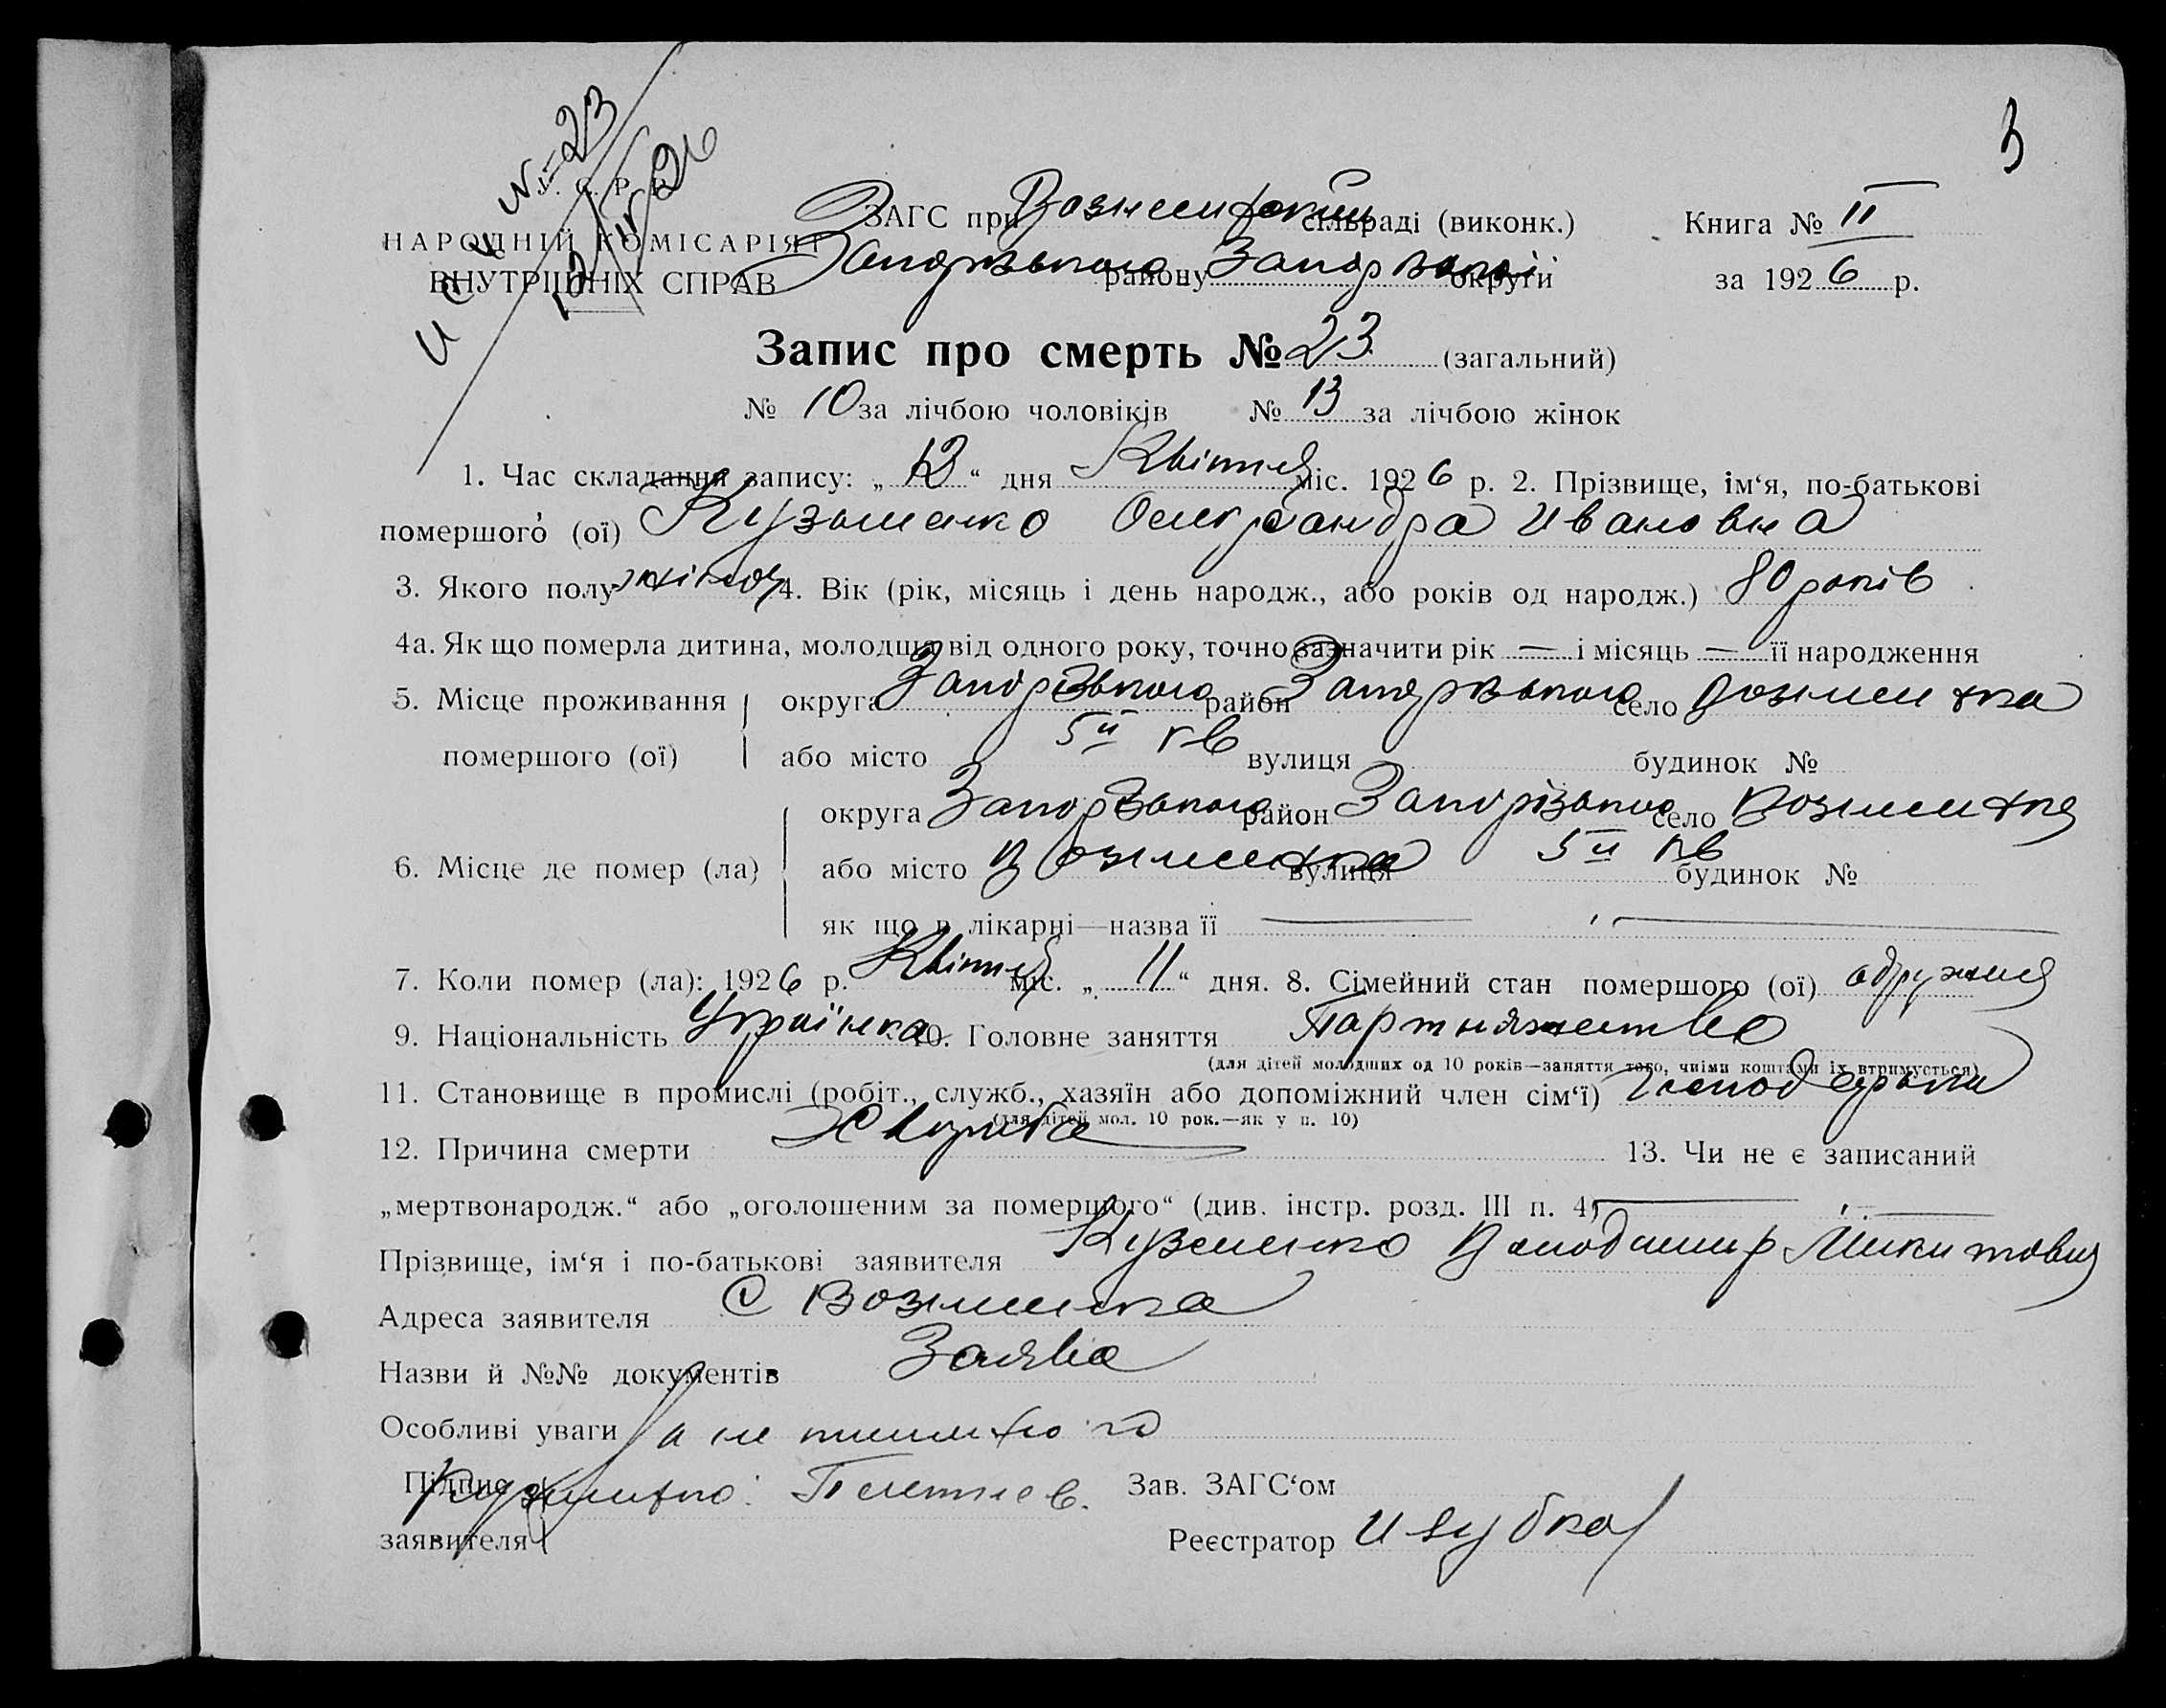 3
№ 23
У. С. Р. Р.
НАРОДНІЙ КОМІСАРІЯТ
ВНУТРІШНІХ СПРАВ
ЗАГС при Вознесенській сільраді (виконк.) Книга № II
Запорізького району Запорізької округи за 1926 р.
Запис про смерть № 23 (загальний)
№ 10 за лічбою чоловіків № 13 за лічбою жінок
1. Час складання запису: „ 12 “ дня Квітня міс. 1926 р. 2. Прізвище, ім‘я, по-батькові
помершого (ої) Кузьменко Олександра Ивановна
3. Якого полу жіноч 4. Вік (рік, місяць і день народж., або років од народж.) 80 років
4а. Як що померла дитина, молодша від одного року, точно зазначити рік — і місяць — її народження
5. Місце проживання округа Запорізького район Запорізького село Вознесенка
помершого (ої) або місто 5й кв вулиця будинок №
округа Запорізького район Запорізького село Вознесенка
6. Місце де помер (ла) або місто Вознесенка вулиця 5й кв будинок №
як що в лікарні—назва її —
7. Коли помер (ла): 1926 р. Квітня міс. „ 11 “ дня. 8. Сімейний стан помершого (ої)
9. Національність Українка 10. Головне заняття
(для дітей молодших од 10 років—заняття того, чиїми коштами їх втримується)
11. Становище в промислі (робіт., служб., хазяїн або допоміжний член сім‘ї)
(для дітей мол. 10 рок.—як у п. 10)
12. Причина смерти 13. Чи не є записаний
„мертвонародж.“ або „оголошеним за померщого“ (див. інстр. розд. III п. 4) —
Прізвище, ім‘я і по-батькові заявителя Кузменко Володимир Микитович
Адреса заявителя С Вознесенка
Назви й №№ документів Заява
Особливі уваги
Підпис Зав. ЗАГС‘ом
заявителя Реєстратор